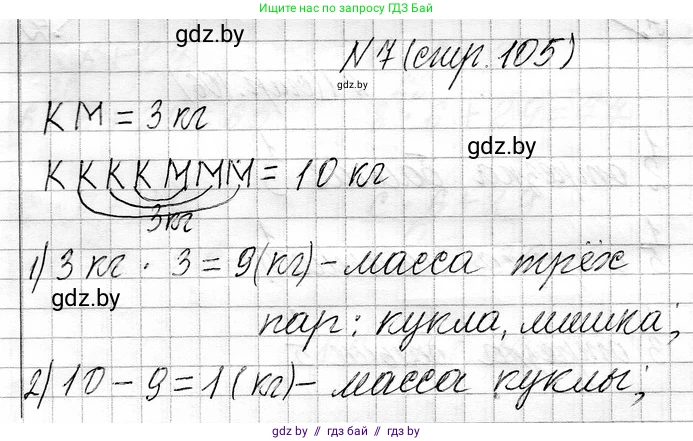 Ищите нас по запросу ГДЗ Бай
gdz.by
N 7 (стр. 105)
gdz.by
К М = 3 кг
gdz.by
К К К К М М М = 10 кг
3кг
1) 3 кг · 3 = 9 (кг) - масса трёх
gdz.by
пар: кукла, мишка;
2) 10 - 9 = 1 (кг) - масса куклы;
gdz.by // гдз бай // гдз by